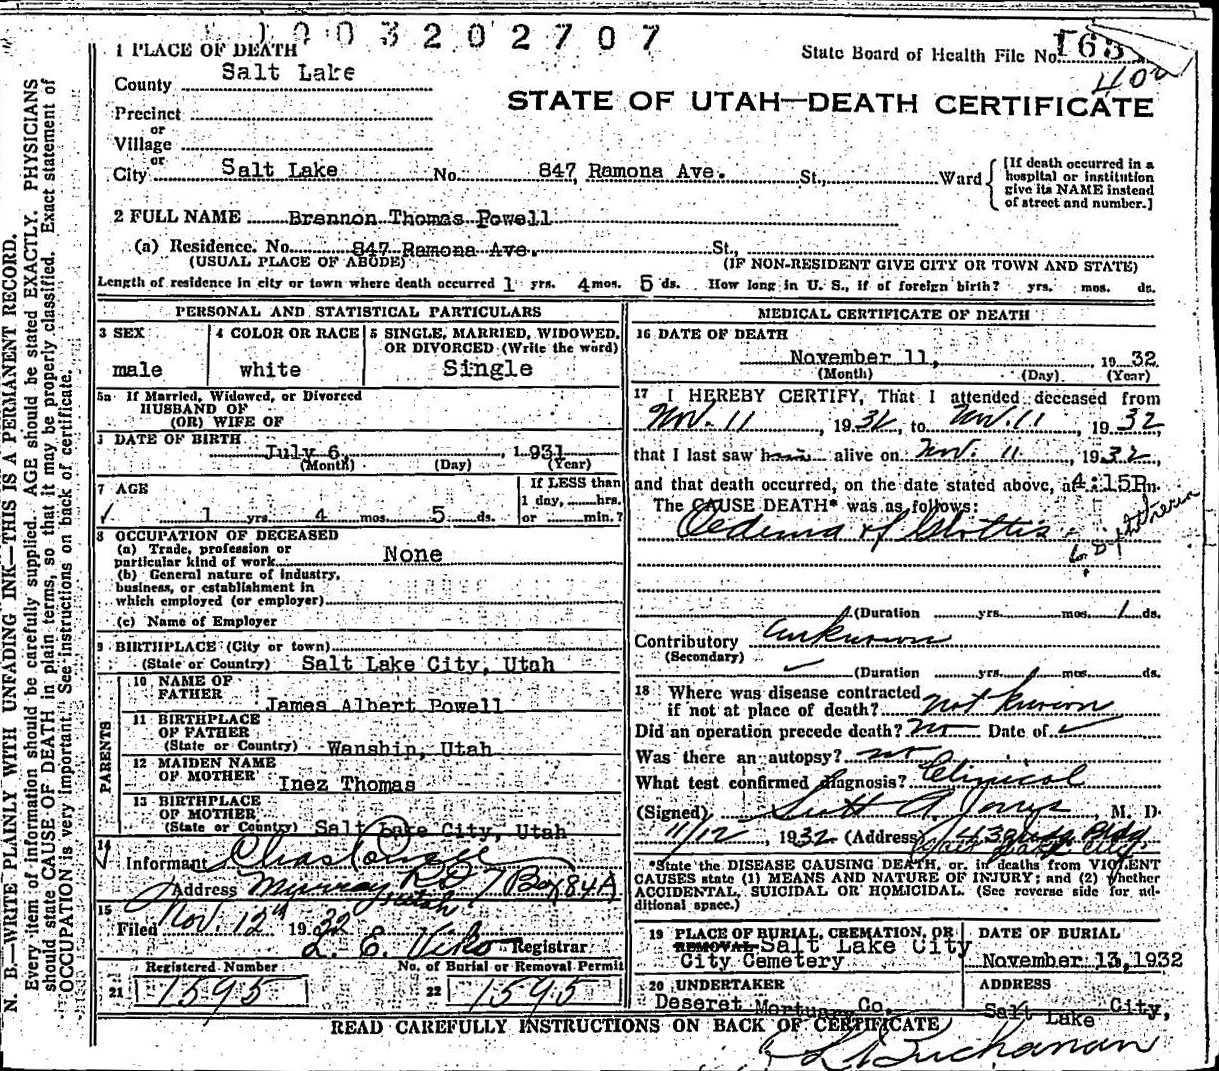 1003202707
1 PLACE OF DEATH
State Board of Health File No.
County Salt Lake
400
STATE OF UTAH—DEATH CERTIFICATE
Precinct
or
Village
or
City Salt Lake No. 847 Ramona Ave. St., Ward
[If death occurred in a hospital or institution give its NAME instead of street and number.]
2 FULL NAME Brennon Thomas Powell
(a) Residence. No. 847 Ramona Ave. St.,
(USUAL PLACE OF ABODE) (IF NON-RESIDENT GIVE CITY OR TOWN AND STATE)
Length of residence in city or town where death occurred 1 yrs. 4 mos. 5 ds. How long in U. S., if of foreign birth? yrs. mos. ds.
PERSONAL AND STATISTICAL PARTICULARS
3 SEX
male
4 COLOR OR RACE
white
5 SINGLE, MARRIED, WIDOWED,
OR DIVORCED (Write the word)
Single
5a If Married, Widowed, or Divorced
HUSBAND OF
(OR) WIFE OF
DATE OF BIRTH
July 6, 1931
(Month) (Day) (Year)
7 AGE
1 yrs. 4 mos. 5 ds.
If LESS than
1 day, hrs.
or min.?
8 OCCUPATION OF DECEASED
(a) Trade, profession or
particular kind of work None
(b) General nature of industry,
business, or establishment in
which employed (or employer)
(c) Name of Employer
9 BIRTHPLACE (City or town)
(State or Country) Salt Lake City, Utah
PARENTS
10 NAME OF
FATHER James Albert Powell
11 BIRTHPLACE
OF FATHER
(State or Country) Wanship, Utah
12 MAIDEN NAME
OF MOTHER Inez Thomas
13 BIRTHPLACE
OF MOTHER
(State or Country) Salt Lake City, Utah
14
Informant Chas Powell
Address Murray RD 7 Box 84A
Utah
15
Filed Nov. 12th 1932
L. E. Viko Registrar
Registered Number
21 1595
No. of Burial or Removal Permit
22 1595
MEDICAL CERTIFICATE OF DEATH
16 DATE OF DEATH
November 11, 1932
(Month) (Day) (Year)
17 I HEREBY CERTIFY, That I attended deceased from
Nov. 11, 1932, to Nov. 11, 1932,
that I last saw him alive on Nov. 11, 1932,
and that death occurred, on the date stated above, at 4:15P m.
The CAUSE DEATH* was as follows:
Oedema of Glottis
(Duration yrs. mos. 1 ds.
Contributory Unknown
(Secondary)
(Duration yrs. mos. ds.
18 Where was disease contracted
if not at place of death? not known
Did an operation precede death? no Date of
Was there an autopsy? no
What test confirmed diagnosis? Clinical
(Signed) Scott A. Jones M. D.
11/12, 1932 (Address)
*State the DISEASE CAUSING DEATH, or, in deaths from VIOLENT
CAUSES state (1) MEANS AND NATURE OF INJURY; and (2) whether
ACCIDENTAL, SUICIDAL OR HOMICIDAL. (See reverse side for ad-
ditional space.)
19 PLACE OF BURIAL, CREMATION, OR
REMOVAL Salt Lake City
City Cemetery
DATE OF BURIAL
November 13, 1932
20 UNDERTAKER
Deseret Mortuary Co.
ADDRESS
Salt Lake City,
READ CAREFULLY INSTRUCTIONS ON BACK OF CERTIFICATE
Buchanan
N. B.—WRITE PLAINLY WITH UNFADING INK—THIS IS A PERMANENT RECORD.
Every item of information should be carefully supplied. AGE should be stated EXACTLY. PHYSICIANS
should state CAUSE OF DEATH in plain terms, so that it may be properly classified. Exact statement of
OCCUPATION is very important. See instructions on back of certificate.